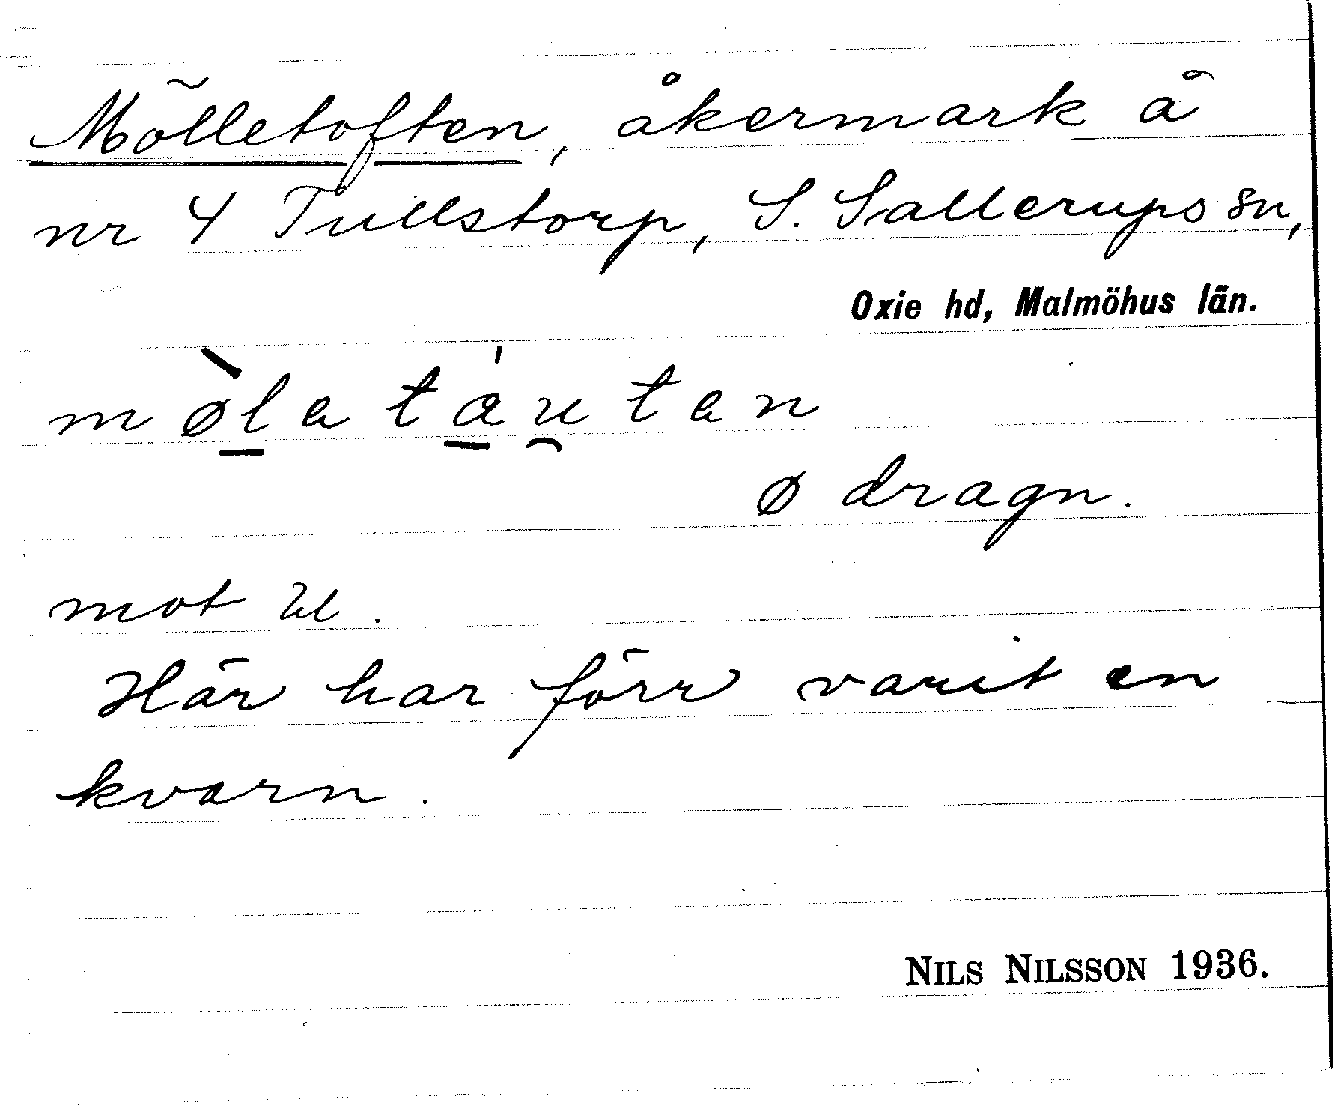 Mölletoften, åkermark å
nr 4 Tullstorp, S. Sallerups sn,
Oxie hd, Malmöhus län.
mø̀l̲a ta̲̍u̯tan
ø dragn.
mot u.
Här har förr varit en
kvarn.
NILS NILSSON 1936.